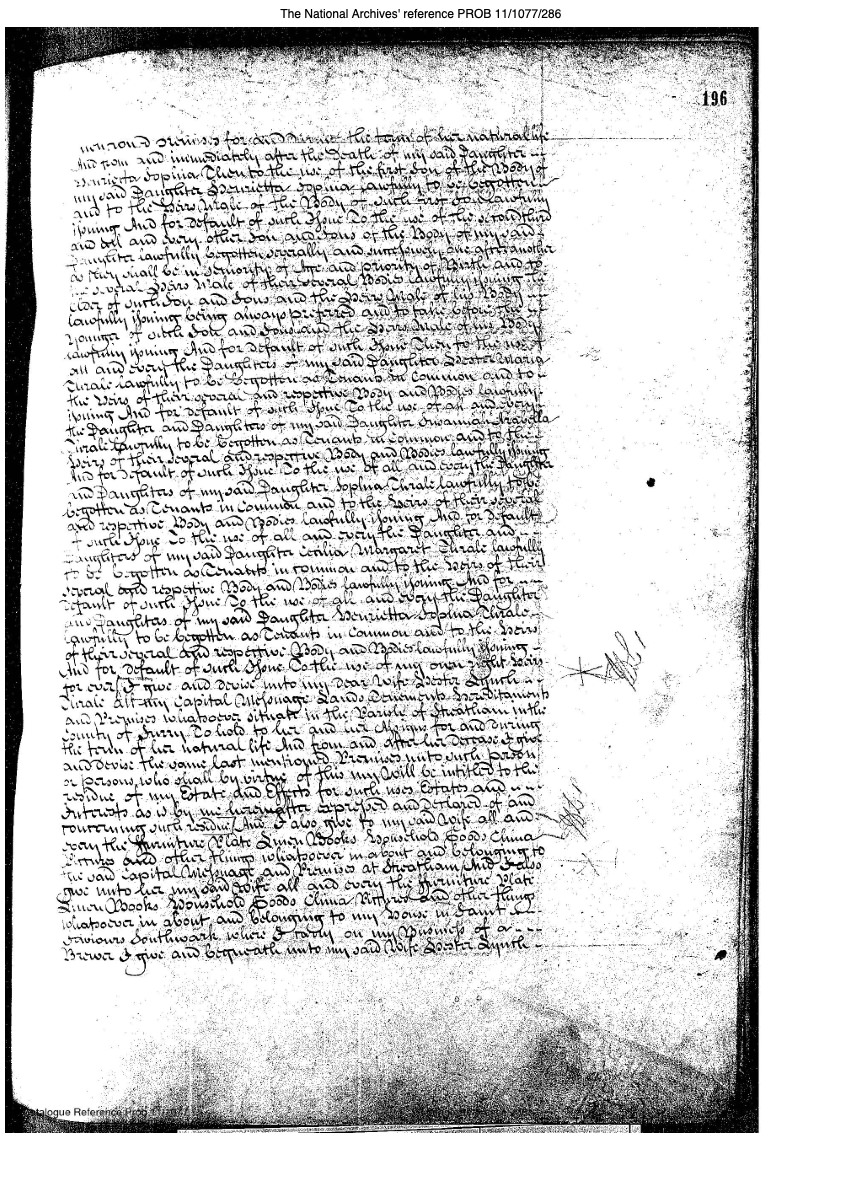 The National Archives' reference PROB 11/1077/286
196
mentioned premises for and during the term of her natural life
And from and immediately after the Death of my said Daughter
Henrietta Sophia Then to the use of the first Son of the Body of
my said Daughter Henrietta Sophia lawfully to be begotten
and to the Heirs Male of the Body of such first Son lawfully
issuing And for default of such Issue To the use of the second third
and all and every other Son and Sons of the Body of my said
Daughter lawfully begotten severally and successively one after another
as they shall be in seniority of Age and priority of Birth and to
the several Heirs Male of their several Bodies lawfully issuing the
elder of such Son and Sons and the Heirs Male of his Body
lawfully issuing being always preferred and to take before the
younger of such Son and Sons and the Heirs Male of his Body
lawfully issuing And for default of such Issue Then to the use of
all and every the Daughters of my said Daughter Hester Maria
Thrale lawfully to be begotten as Tenants in Common and to
the Heirs of their several and respective Body and Bodies lawfully
issuing And for default of such Issue To the use of all and every
the Daughter and Daughters of my said Daughter Susannah Aravella
Thrale lawfully to be begotten as Tenants in Common and to the
Heirs of their Several and respective Body and Bodies lawfully issuing
And for default of such Issue To the use of all and every the Daughter
and Daughters of my said Daughter Sophia Thrale lawfully to be
begotten as Tenants in Common and to the Heirs of their several
and respective Body and Bodies lawfully issuing And for default
of such Issue To the use of all and every the Daughter and
Daughters of my said Daughter Cecilia Margaret Thrale lawfully
to be begotten as Tenants in common and to the Heirs of their
several and respective Body and Bodies lawfully issuing And for
default of such Issue To the use of all and every the Daughter
and Daughters of my said Daughter Henrietta Sophia Thrale
lawfully to be begotten as Tenants in Common and to the Heirs
of their several and respective Body and Bodies lawfully issuing
And for default of such Issue To the use of my own right Heirs
for ever I give and devise unto my dear Wife Hester Lynch
Thrale all my Capital Messuage Lands Tenements Hereditaments
and Premises whatsoever situate in the Parish of Streatham in the
County of Surry To hold to her and her Assigns for and during
the term of her natural life And from and after her decease I give
and devise the same last mentioned Premises unto such person
or persons who shall by virtue of this my Will be intitled to the
residue of my Estate and Effects for such uses Estates and
Interests as is by me hereinafter expressed and declared of and
concerning such residue And I also give to my said Wife all and
every the Furniture Plate Linen Books Household Goods China
Pictures and other things whatsoever in about and belonging to
the said Capital Messuage and Premises at Streatham And I also
give unto her my said Wife all and every the Furniture Plate
Linen Books Household Goods China Pictures and other things
whatsoever in about and belonging to my House in Saint
Saviours Southwark where I carry on my Business of a
Brewer I give and bequeath unto my said Wife Hester Lynch
Catalogue Reference Prob 11/1077